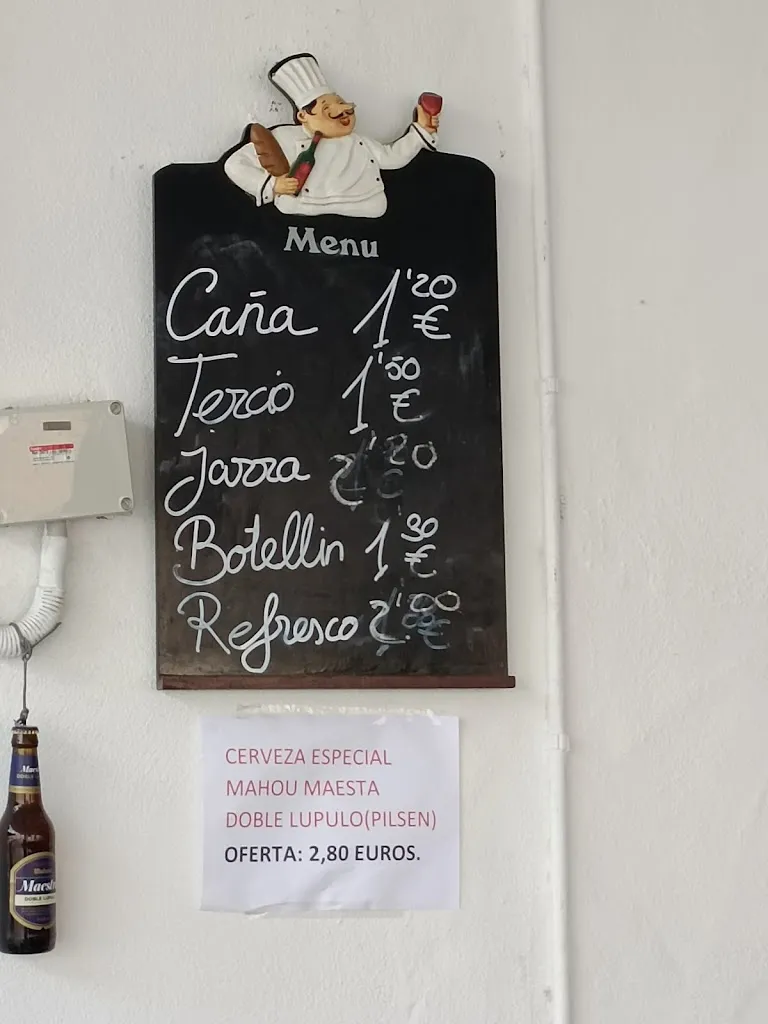 Menu
Caña 1'20 €
Tercio 1'50 €
Jarra 2'20 €
Botellin 1'30 €
Refresco 2'00 €
CERVEZA ESPECIAL
MAHOU MAESTA
DOBLE LUPULO(PILSEN)
OFERTA: 2,80 EUROS.
Maest
DOBLE